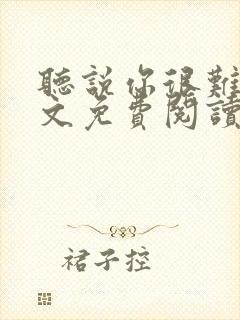 聽說你很難
文免費閱讀
裙子控